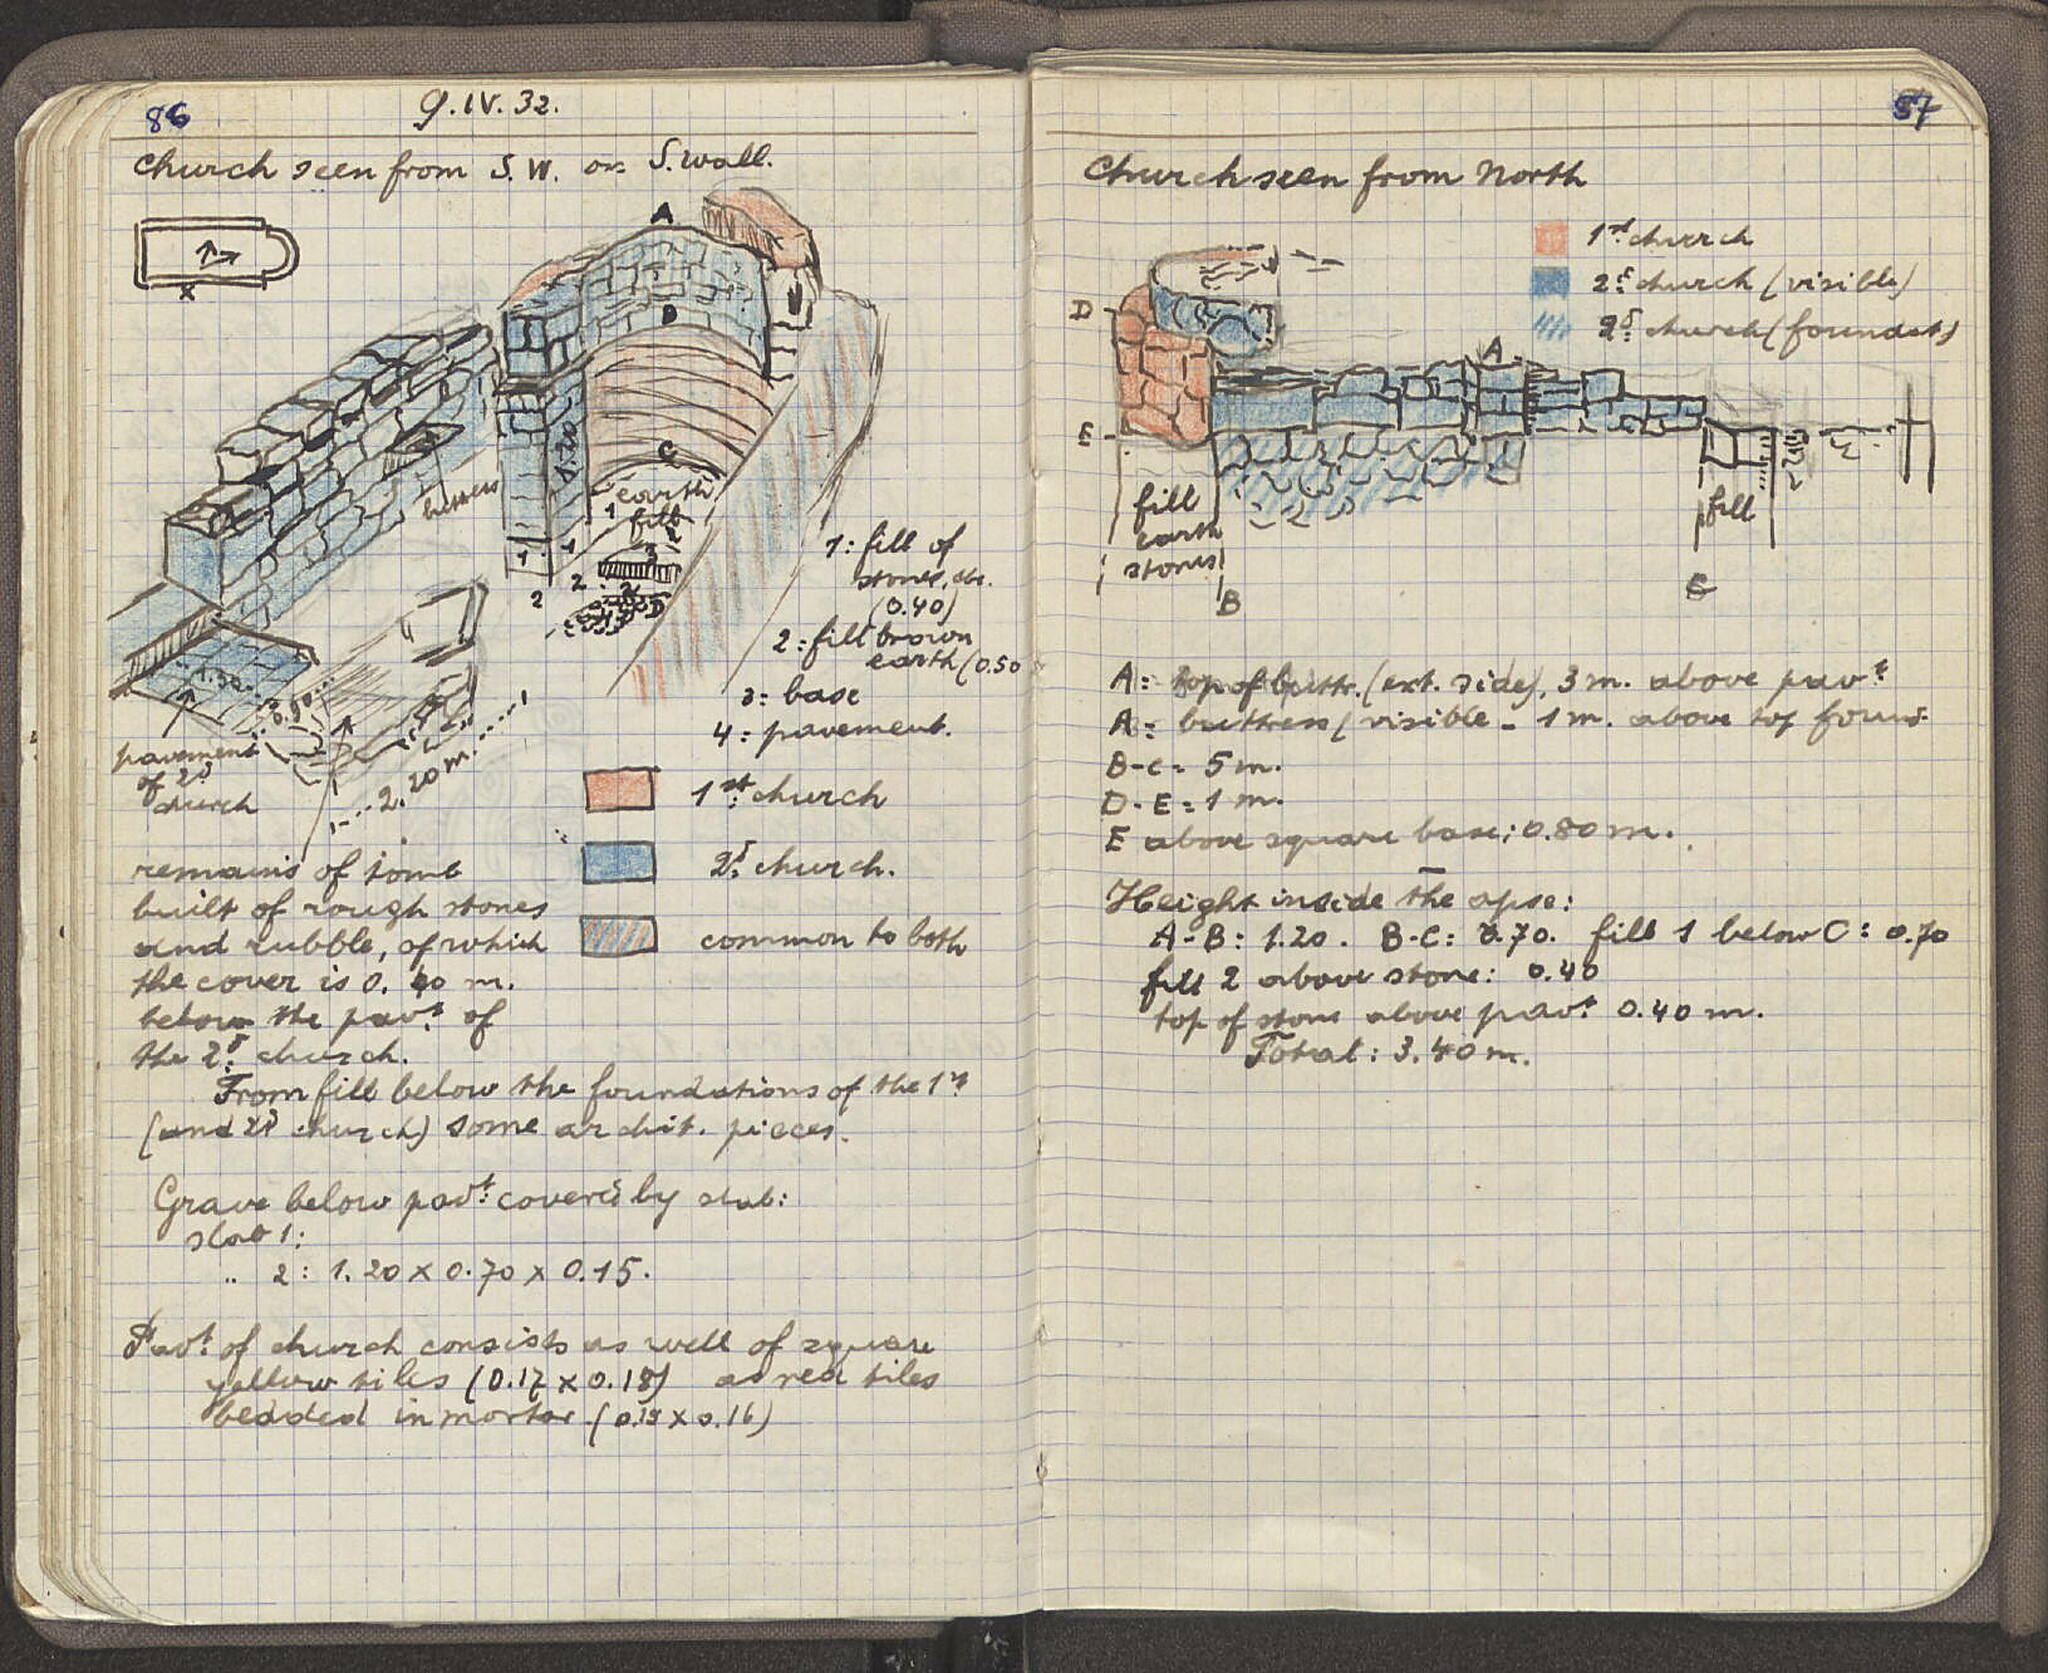 86
9.IV.32.
Church seen from S.W. on S.wall.
A
D
1.20
C
buttress
earth
1 fill
2
3
1 1
2 2
2
4 D
1: fill of
stones, etc.
(0.40)
2: fill brown
earth (0.50
3: base
4: pavement.
1.30
0.90
2.20 m.
pavement
of 2d
church
1st church
2d church.
common to both
remains of tomb
built of rough stones
and rubble, of which
the cover is 0.40 m.
below the pavt of
the 2d church.
From fill below the foundations of the 1st
(and 2d church) some archit. pieces.
Grave below pavt covered by slab:
slab 1:
" 2: 1.20 x 0.70 x 0.15.
Pavt of church consists as well of square
yellow tiles (0.17 x 0.18) as red tiles
bedded in mortar (0.19 x 0.16)
87
Church seen from North
1st church
2d church (visible)
2d church (foundats)
D
A
E
fill
earth
stones
B
fill
C
A: top of buttr. (ext. side), 3 m. above pavt
A: buttress (visible - 1 m. above top found.
B-C: 5 m.
D-E: 1 m.
E above square base: 0.80 m.
Height inside the apse:
A-B: 1.20. B-C: 0.70. fill 1 below C: 0.70
fill 2 above stone: 0.40
top of stone above pavt 0.40 m.
Total: 3.40 m.